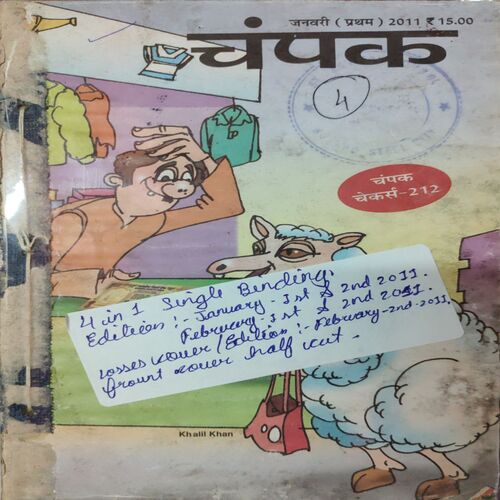 जनवरी ( प्रथम ) 2011 ₹ 15.00
चंपक
4
चंपक
चेकर्स-212
4 in 1 Single Bending.
Edition :- January - 1st & 2nd 2011.
February - 1st & 2nd 2011.
losses kouer/Edition :- February-2nd-2011.
frount kouer half kut.
Khalil Khan